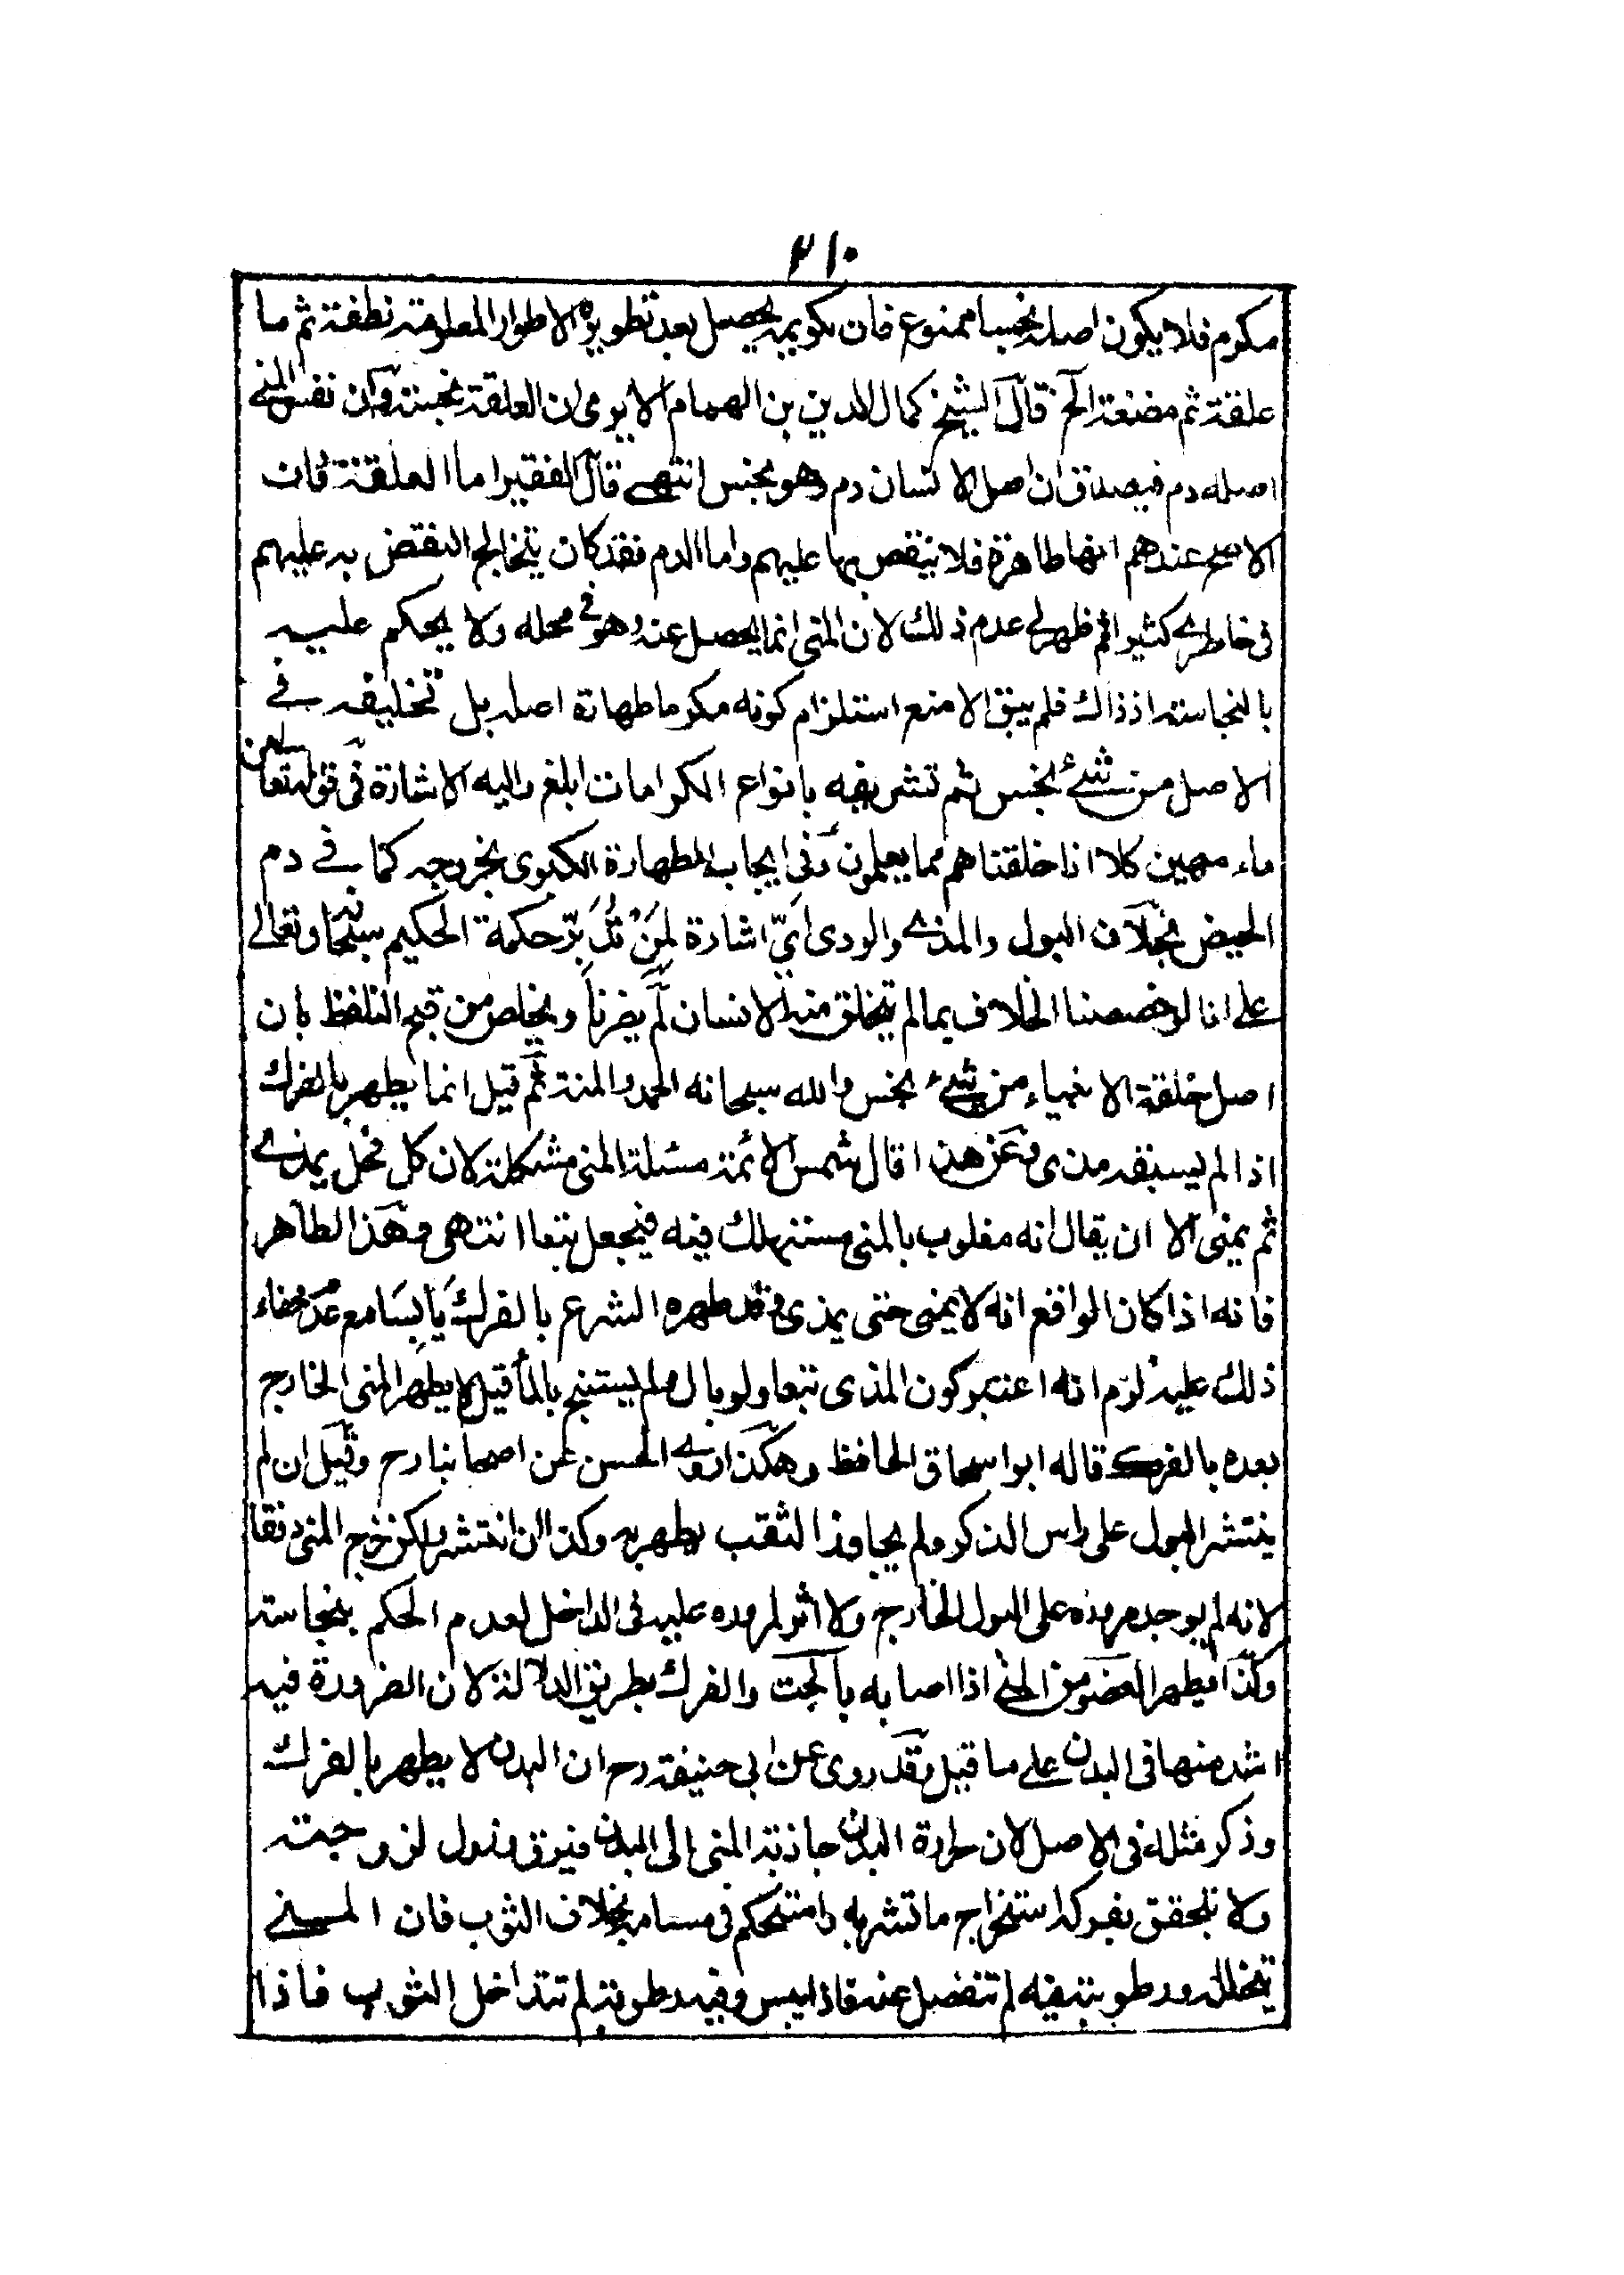 ٢١٠
مكرم فلا يكون اصله نجسا ممنوع فان تكريمه يحصل بعد تطويره الاطوار المعلومة نطفة ثم ما
علقة ثم مضغة الخ قال الشيخ كمال الدين بن الهمام الا يرى ان العلقة نجسة وان نفس المنى
اصله دم فيصدق ان اصل الانسان دم وهو نجس انتهى قال الفقير اما العلقة فان
الاصح عندهم انها طاهرة فلا ينقص بها عليهم واما الدم فقد كان يتخالج النقض به عليهم
فى خاطرى كثيرا ثم ظهر لى عدم ذلك لان المنى انما يحصل عنه وهو فى محله ولا يحكم عليه
بالنجاسة اذ ذاك فلم يبق الا منع استلزام كونه مكرما طهارة اصله بل تخليقه فى
الاصل من شئ نجس ثم تشريفه بانواع الكرامات ابلغ واليه الاشارة فى قوله تعا من
ماء مهين كلا انا خلقناهم مما يعلمون وفى ايجاب الطهارة الكبرى بخروجه كما فى دم
الحيض بخلاف البول والمذى والودى اىّ اشارة لمن تدبّر حكمة الحكيم سبحانه وتعالى
على انا لو خصصنا الخلاف بما لم يتخلق منه الانسان لم يضرنا ويخلص من قبح التلفظ بان
اصل خلقة الانبياء من شئ نجس والله سبحانه الحمد والمنة ثم قيل انما يطهر بالفرك
اذا لم يسبقه مذى وعن هذا قال شمس الائمة مسئلة المنى مشكلة لان كل فحل يمذى
ثم يمنى الا ان يقال انه مغلوب بالمنى مستهلك فيه فيجعل تبعا انتهى وهذا الظاهر
فانه اذا كان الواقع انه لا يمنى حتى يمذى وقد طهره الشرع بالفرك يابسا مع عدم خفاء
ذلك عليه لزم انه اعتبر كون المذى تبعا ولو بال ولم يستنج بالماء قيل لا يطهر المنى الخارج
بعده بالفرك قاله ابو اسحاق الحافظ وهكذا روى الحسن عن اصحابنا رح وقيل ان لم
ينتشر البول على راس الذكر ولم يجاوز الثقب يطهر به وكذا ان انتشر ولكن خرج المنى دفقا
لانه لم يوجد مروره على البول الخارج ولا اثر لمروره عليه فى الداخل لعدم الحكم بنجاسته
وكذا يطهر العضو من المنى اذا اصابه بالحت والفرك بطريق الدلالة لان الضرورة فيه
اشد منها فى البدن على ما قيل وقد روى عن ابى حنيفة رح ان البدن لا يطهر بالفرك
وذكر مثله فى الاصل لان حرارة البدن جاذبة المنى الى البدن فيرق وتزول لزوجته
ولا يتحقق بفركه استخراج ما تشربه واستحكم فى مسامه بخلاف الثوب فان المنى
يتخلله ورطوبته فيه لم تنفصل عنه فاذا يبس وفيه رطوبته لم تتداخل الثوب فاذا